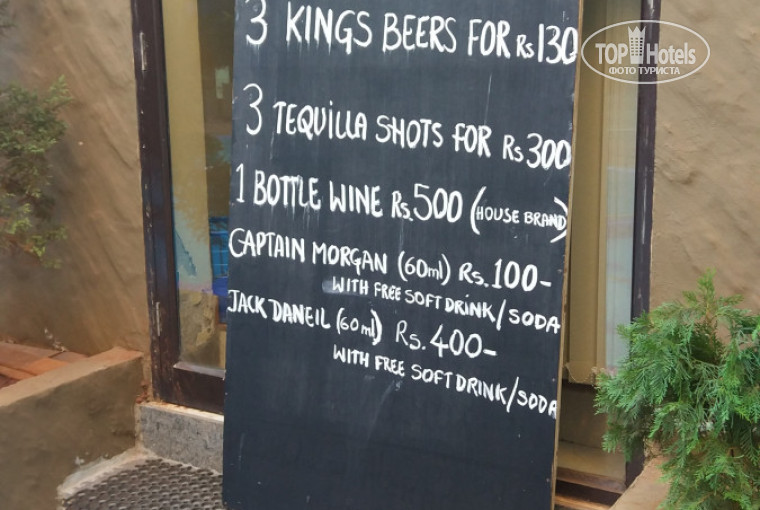 3 KINGS BEERS FOR Rs 130
TOP Hotels
ФОТО ТУРИСТА
3 TEQUILLA SHOTS FOR Rs 300
1 BOTTLE WINE Rs. 500 (HOUSE BRAND)
CAPTAIN MORGAN (60ml) Rs. 100-
WITH FREE SOFT DRINK/SODA
JACK DANEIL (60ml) Rs. 400-
WITH FREE SOFT DRINK/SODA